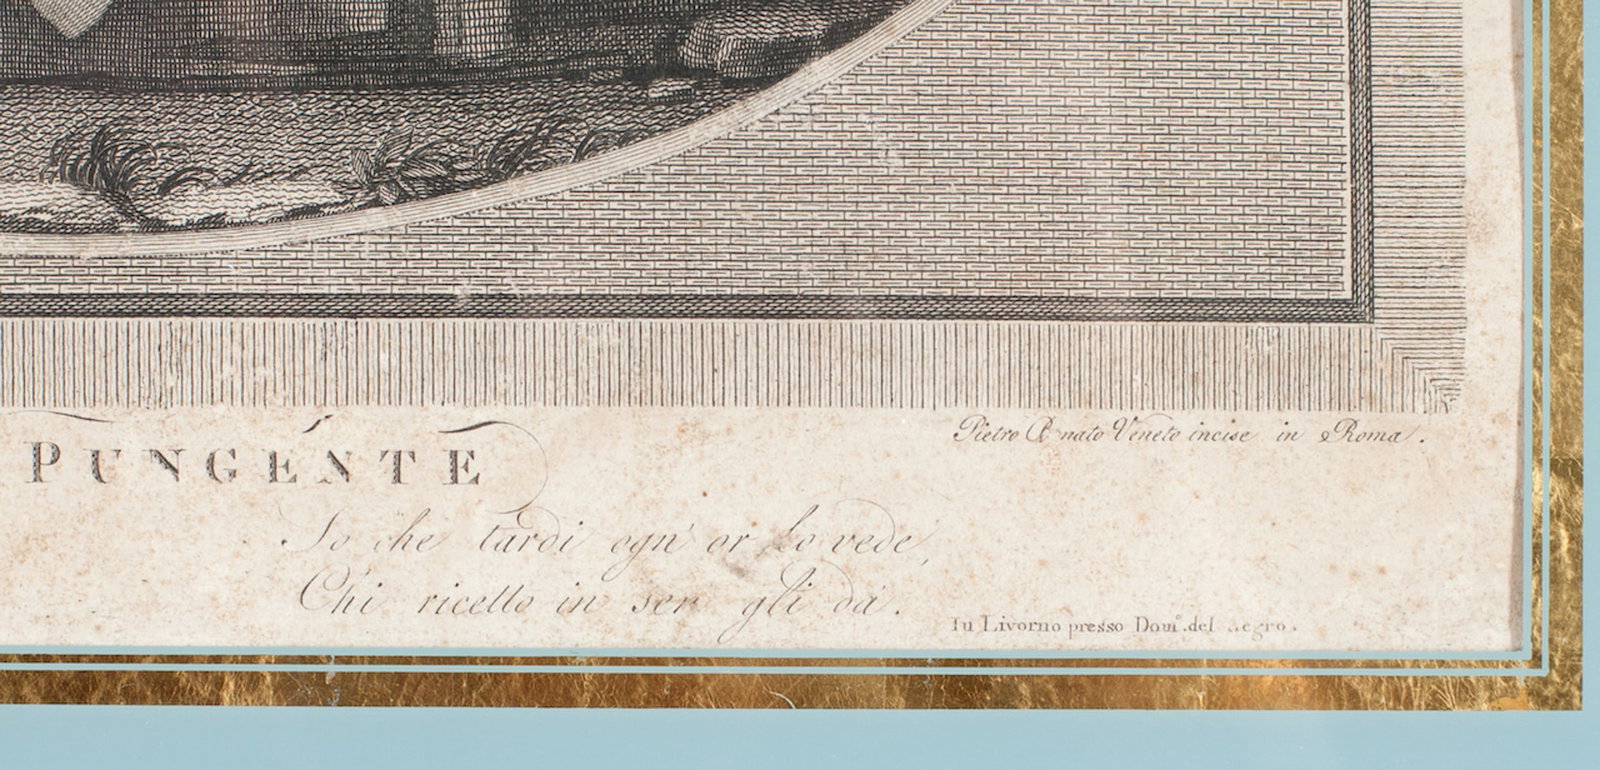 PUNGENTE
Pietro Bonato Veneto incise in Roma.
So che tardi ogn' or lo vede,
Chi ricetto in sen gli dà.
In Livorno presso Dom.º del Negro.